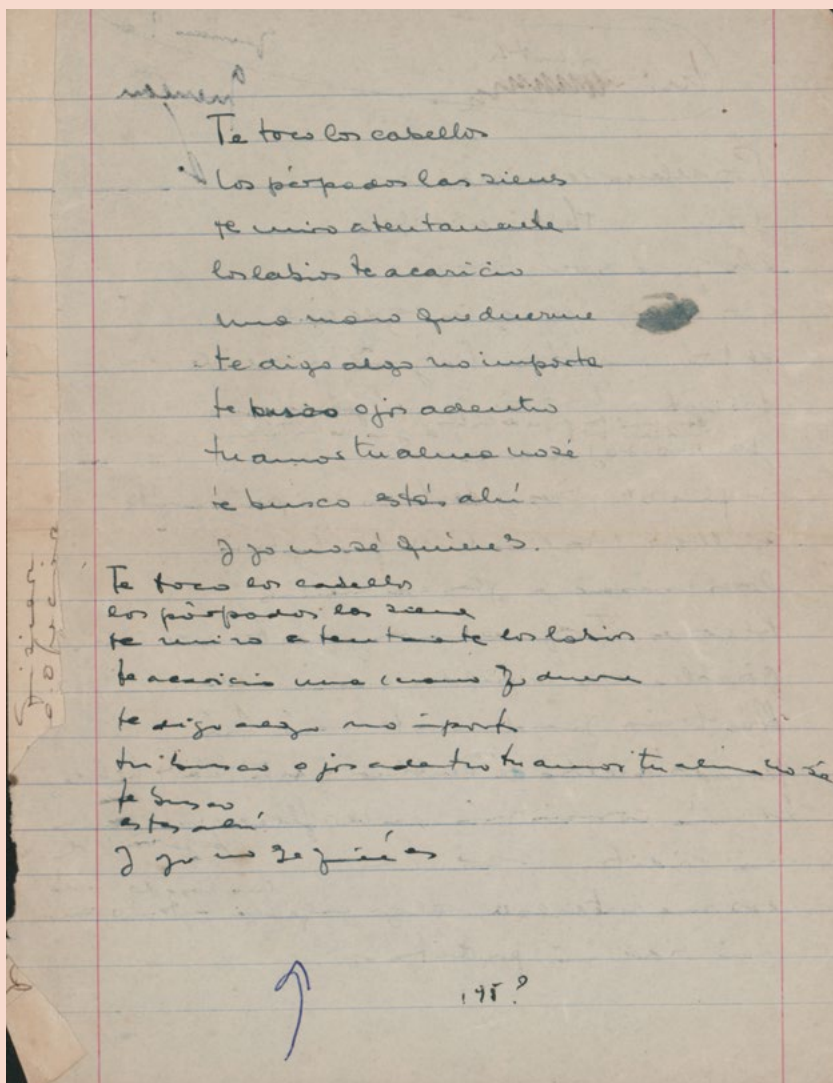 Te toco los cabellos
los párpados las sienes
te miro atentamente
los labios te acaricio
una mano que duerme
te digo algo no importa
te busco ojos adentro
tu amor tu alma no sé
te busco estás ahí
y yo no sé quién es.
Te toco los cabellos
los párpados las siene
te miro atentamente los labios
te acaricio una mano q duerme
te digo algo no importa
tu busco ojos adentro tu amor tu alma no sé
te busco
estas ahí
y yo no se quién es
45?